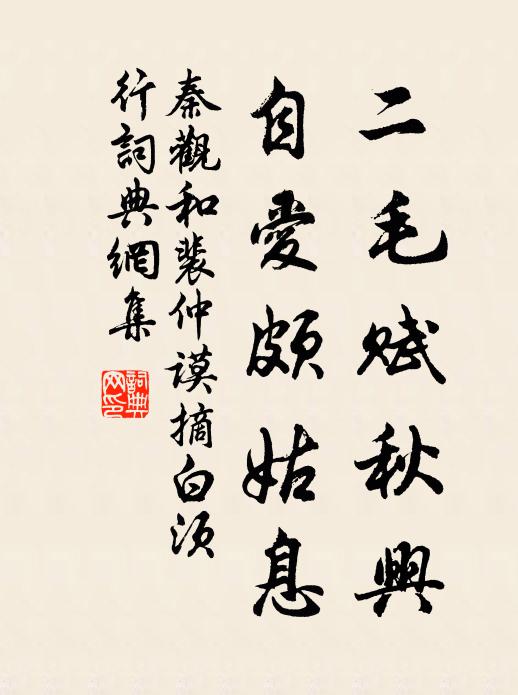 二毛賦秋興
自愛頗姑息
秦觀和裴仲謨摘白須
行詞典網集
詞典
网印